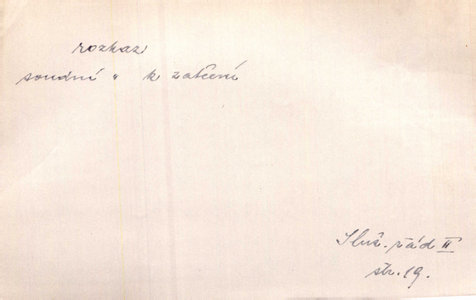 rozkaz
soudní " k zatčení
Služ. řád II
str. 19.